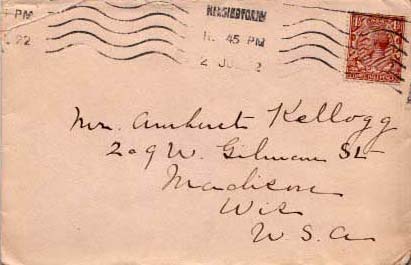 PM
KENSINGTON.W
45 PM
22
2 JU 2
Mr. Amherst Kellogg
209 W. Gilman St
Madison
Wis
U.S.A